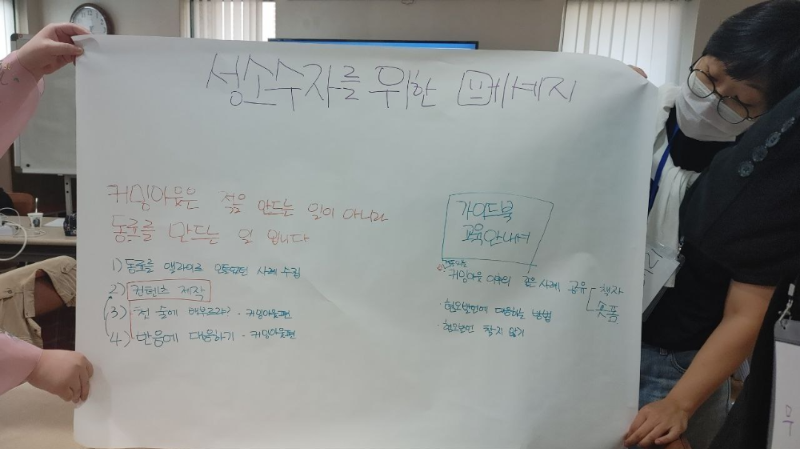 성소수자를 위한 메세지
커밍아웃은 적을 만드는 일이 아니라
동료를 만드는 일 입니다
1) 동료를 앨라이로 만들었던 사례 수집
2) 컨텐츠 제작
3) 첫 술에 배부르랴? · 커밍아웃편
4) 반응에 대응하기 · 커밍아웃편
가이드북
교육안내서
커밍아웃 이후의 좋은 사례 공유
책자
굿품
· 혐오발언에 대응하는 방법
· 혐오발언 참지 않기